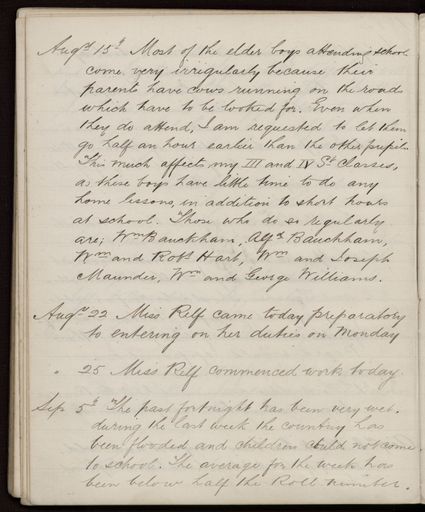 Augst 15th Most of the elder boys attending school
come very irregularly because their
parents have cows running on the road
which have to be looked for. Even when
they do attend, I am requested to let them
go half an hour earlier than the other pupils.
This much affects my III and IV St. Classes,
as these boys have little time to do any
home lessons, in addition to short hours
at school. Those who do so regularly
are; Wm Bauckham, Alfd Bauckham,
Wm and Robt Hart, Wm and Joseph
Maunder, Wm and George Williams.
Augst 22 Miss Relf came today preparatory
to entering on her duties on Monday
" 25 Miss Relf commenced work today.
Sep 5th The past fortnight has been very wet.
during the last week the country has
been flooded and children could not come
to school. The average for the week has
been below half the Roll number.